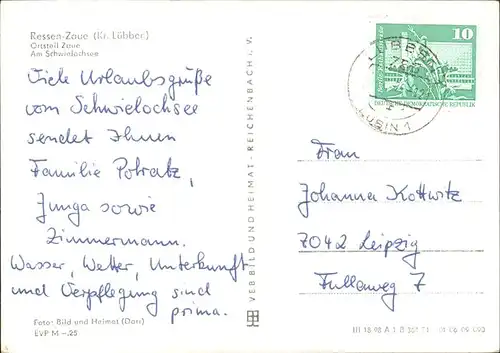 Ressen-Zaue (Kr. Lübben)
Ortsteil Zaue
Am Schwielochsee
Viele Urlaubsgrüße
vom Schwielochsee
sendet Ihnen
Familie Potratz,
Junga sowie
Zimmermann.
Wasser, Wetter, Unterkunft
und Verpflegung sind
prima.
Foto: Bild und Heimat (Darr)
EVP M –.25
VEB BILD UND HEIMAT · REICHENBACH i. V.
10
DEUTSCHE DEMOKRATISCHE REPUBLIK
Frau
Johanna Kottwitz
7042 Leipzig
Fullaweg 7